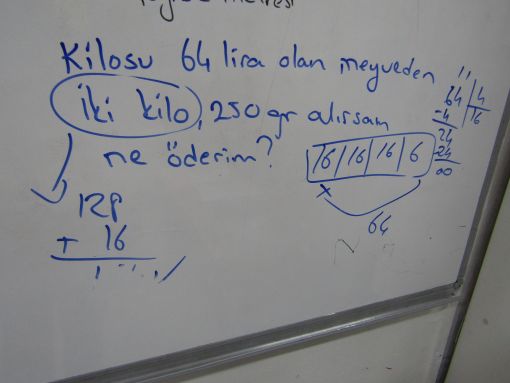 Kilosu 64 lira olan meyveden
iki kilo, 250 gr alırsam
ne öderim?
128
+ 16
16 | 16 | 16 | 6
x
64
64 | 4
-4 | 16
24
-24
00